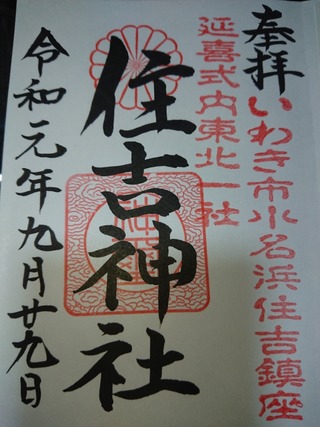 奉拝
いわき市小名浜住吉鎮座
延喜式内東北一社
住吉神社
令和元年九月廿九日